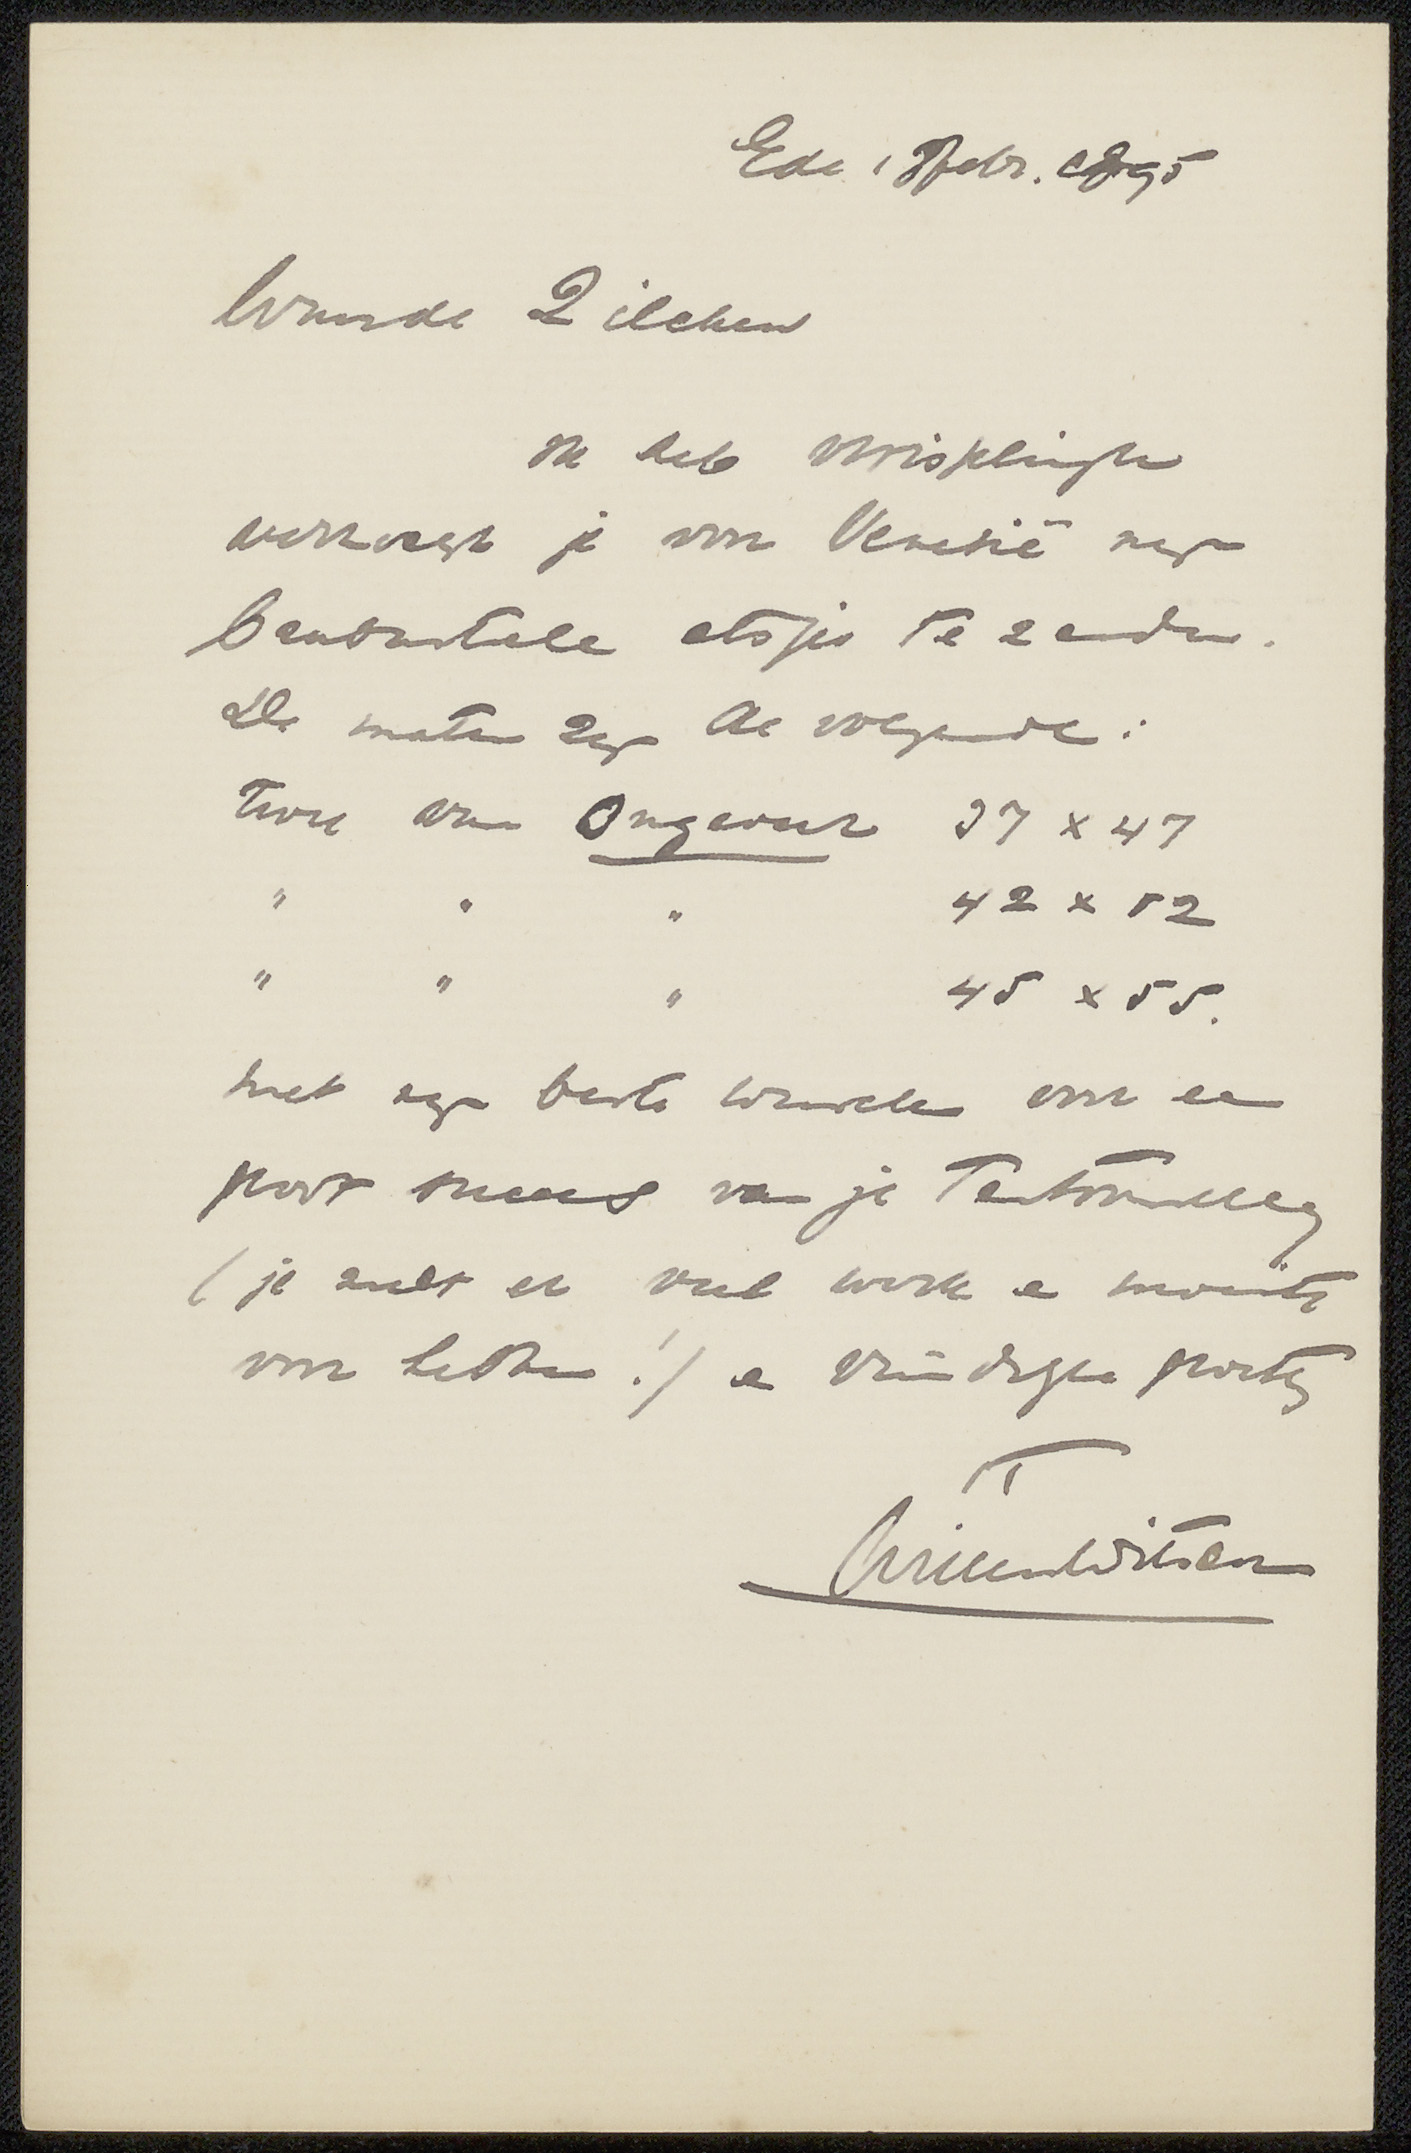 Ede 18 febr. 1895
Waarde Zilcken
Ik heb Wisselingh
verzocht je voor Venetië mijn
bewuste etsjes te zenden.
De maten zijn de volgende:
twee van Ongeveer 37 x 47
" " " 42 x 52
" " " 45 x 55.
met mijn beste wenschen voor een
groot succes van je Tentoonstelling
(je zult er veel werk en moeite
voor hebben!) en vriendelijke groeten
tt
Willem Witsen